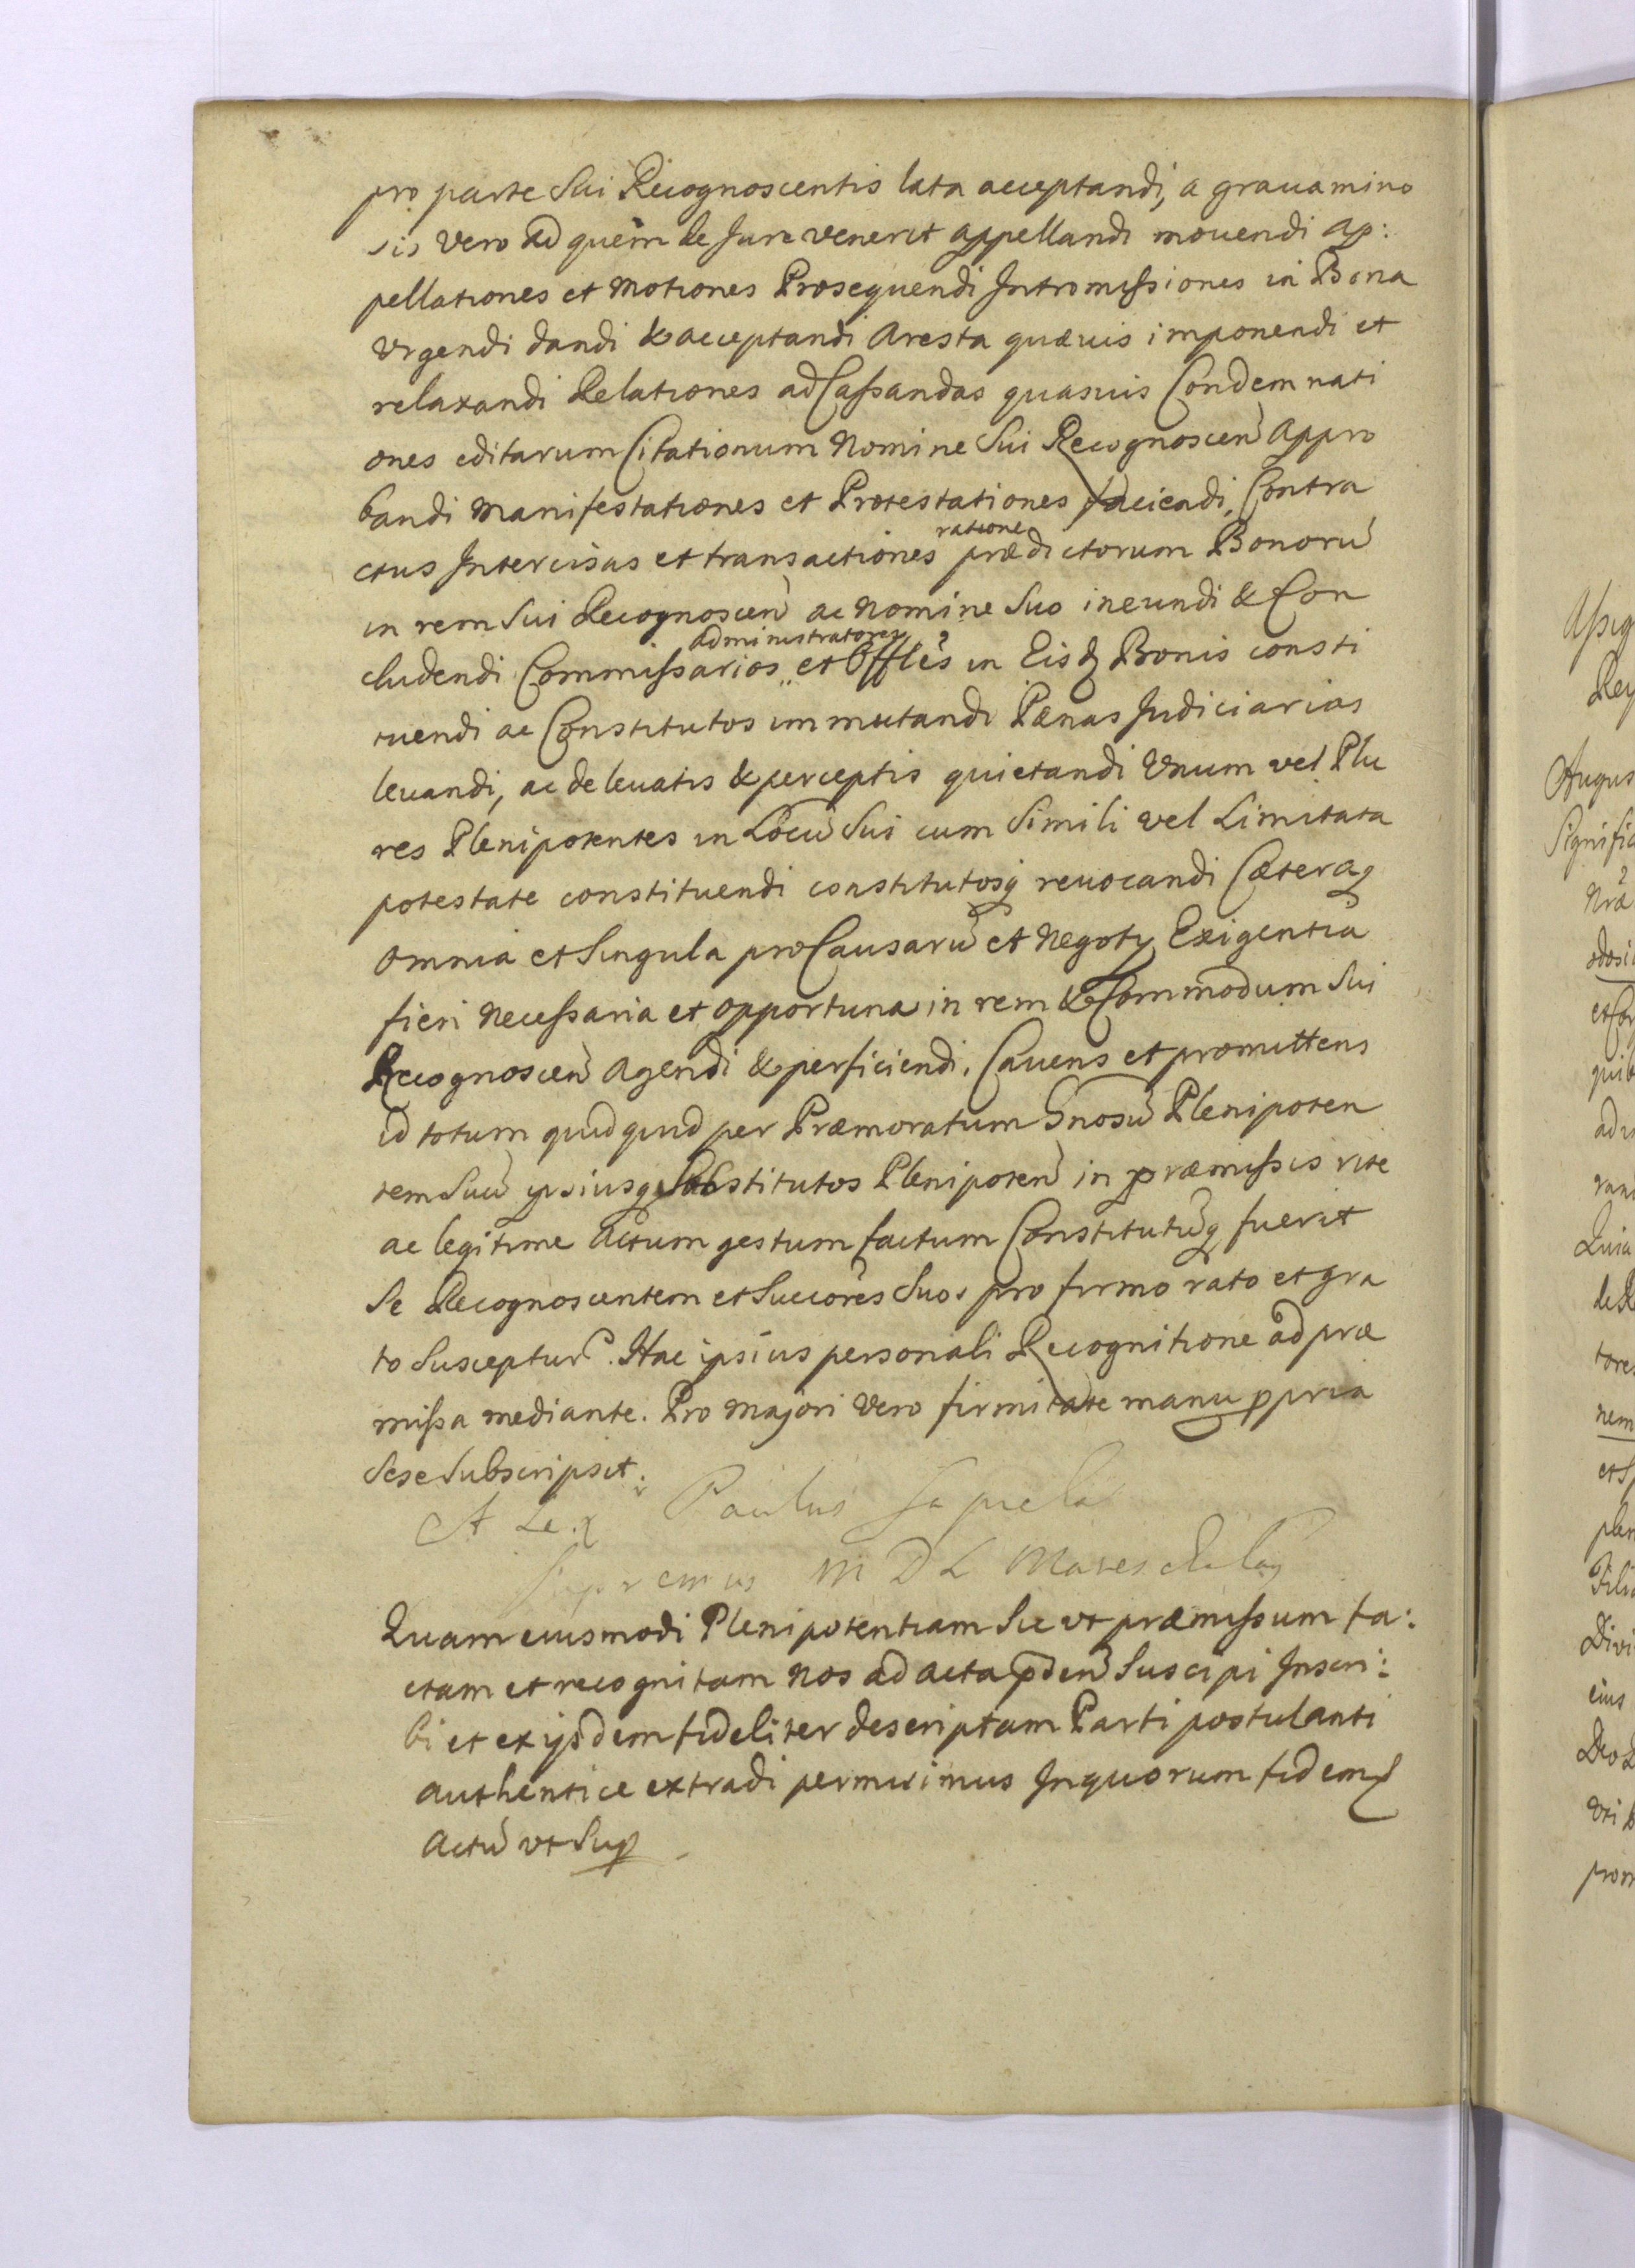 pro parte Sui Recognoscentis lata acceptandi, a grauamino
sis vero ad quem de Jure venerit appellandi mouendi ap:
pellationes et motiones Prosequendi Intromissiones in Bona
Urgendi dandi & acceptandi Aresta quæuis imponendi et
relaxandi Relationes ad Cassandas quasuis Condemnati
ones editarum Citationum Nomine Sui Recognoscen Appro
bandi Manifestationes et Protestationes faciendi, Contra
ctus Intercisas et transactiones ratione prædictorum Bonorū
in rem Sui Recognoscen ac Nomine Suo ineundi & Con
cludendi Commissarios administratores et Offles in Eisd Bonis consti
tuendi ac Constitutos immutandi Pænas Judiciarias
leuandi, ac de leuatis & perceptis quietandi Unum vel Plu
res Plenipotentes in Locū Sui cum Simili vel Limitata
potestate constituendi constitutosq reuocandi Cæteraq
omnia et Singula pro Causarū et Negoty Exigentia
fieri Necessaria et opportuna in rem & Commodum Sui
Recognoscen Agendi & perficiendi. Cauens et promittens
id totum quidquid per Præmoratum Gnosū Plenipoten
tem Suū ipsiusq Substitutos Plenipoten in præmissis rite
ac legitime Actum gestum factum Constitutūq fuerit
Se Recognoscentem et Succores Suos pro firmo rato et gra
to Suscepturū. Hac ipsius personali Recognitione ad præ
missa mediante. Pro Majori Vero firmitate manu ppria
Sese Subscripsit.
Paulus Sapieha
Supremus M D L Mareschalcus
Quam eiusmodi Plenipotentiam Sic vt præmissum fa:
ctam et recognitam Nos ad Acta pden Suscipi Inscri:
bi et ex ijsdem fideliter descriptam Parti postulanti
Authentice extradi permisimus In quorum fidem
Actū vt Sup